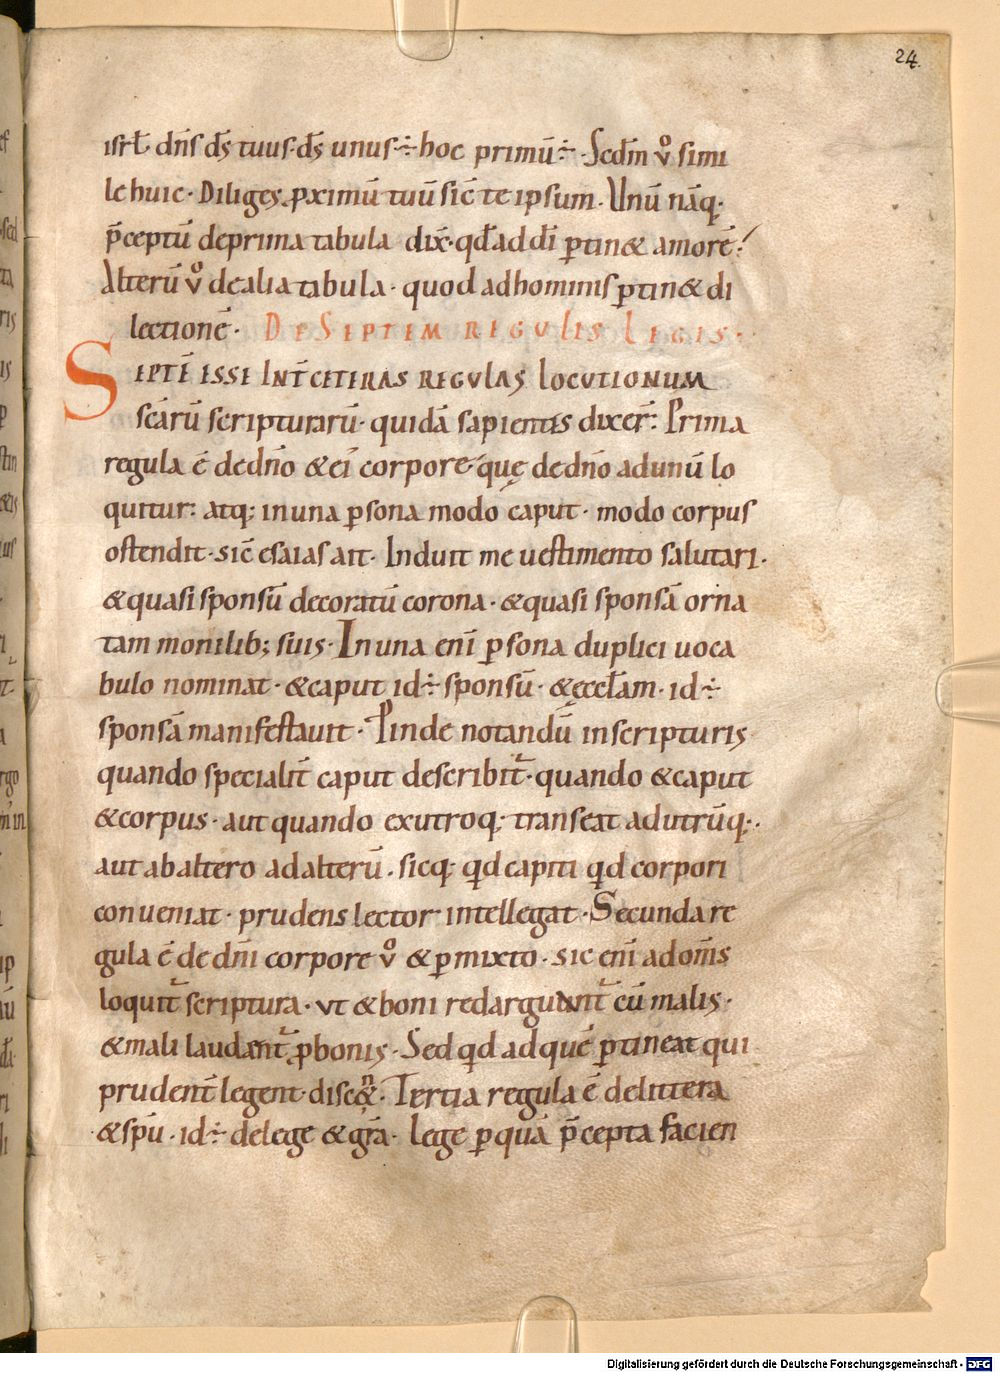 24.
isrł· dn̄s d̄s tuus· d̄s unus ÷ hoc primū ÷ · Scdm̄ v̊ simi
le huic · Diliges ꝓximū tuū sic̄ te ipsum · Unū nāq;·
p̄ceptū de prima tabula dix̄· qd̄ ad dm̄ ꝑtin& amorē ·
Alterū v̊ de alia tabula · quod ad hominis ꝑtin& di
lectionē · DE SEPTEM REGULIS LEGIS ·
SEPTĒ ESSE INT̄ CETERAS REGULAS LOCUTIONUM
scārū scripturarū · quidā sapientes dixer̄ · Prima
regula ē de dn̄o & ei' corpore· quę de dn̄o ad unū lo
quitur: atq; in una ꝑsona modo caput · modo corpus
ostendit · sic̄ esaias ait · Induit me uestimento salutari ·
& quasi sponsū decoratū corona · & quasi sponsā orna
tam monilib; suis · In una enī ꝑsona duplici uoca
bulo nominat · & caput id ÷ sponsū · & eccłam · id ÷
sponsā manifestauit · Proinde notandū in scripturis
quando specialit̄ caput describit̄ · quando & caput
& corpus · aut quando ex utroq; transeat ad utrūq; ·
aut ab altero ad alterū · sicq; qd capiti qd corpori
conueniat · prudens lector intellegat · Secunda re
gula ē de dn̄i corpore v̊ & ꝑmixto · sic enī ad om̄s
loquit̄ scriptura · ut & boni redarguunt̄ cū malis ·
& mali laudent̄ ꝓ bonis · Sed qd ad quē ꝑtineat qui
prudent̄ legent · discern& · Tertia regula ē de littera
& sp̄u · id ÷ de lege & gr̄a · lege ꝑ quā p̄cepta facien
Digitalisierung gefördert durch die Deutsche Forschungsgemeinschaft - DFG